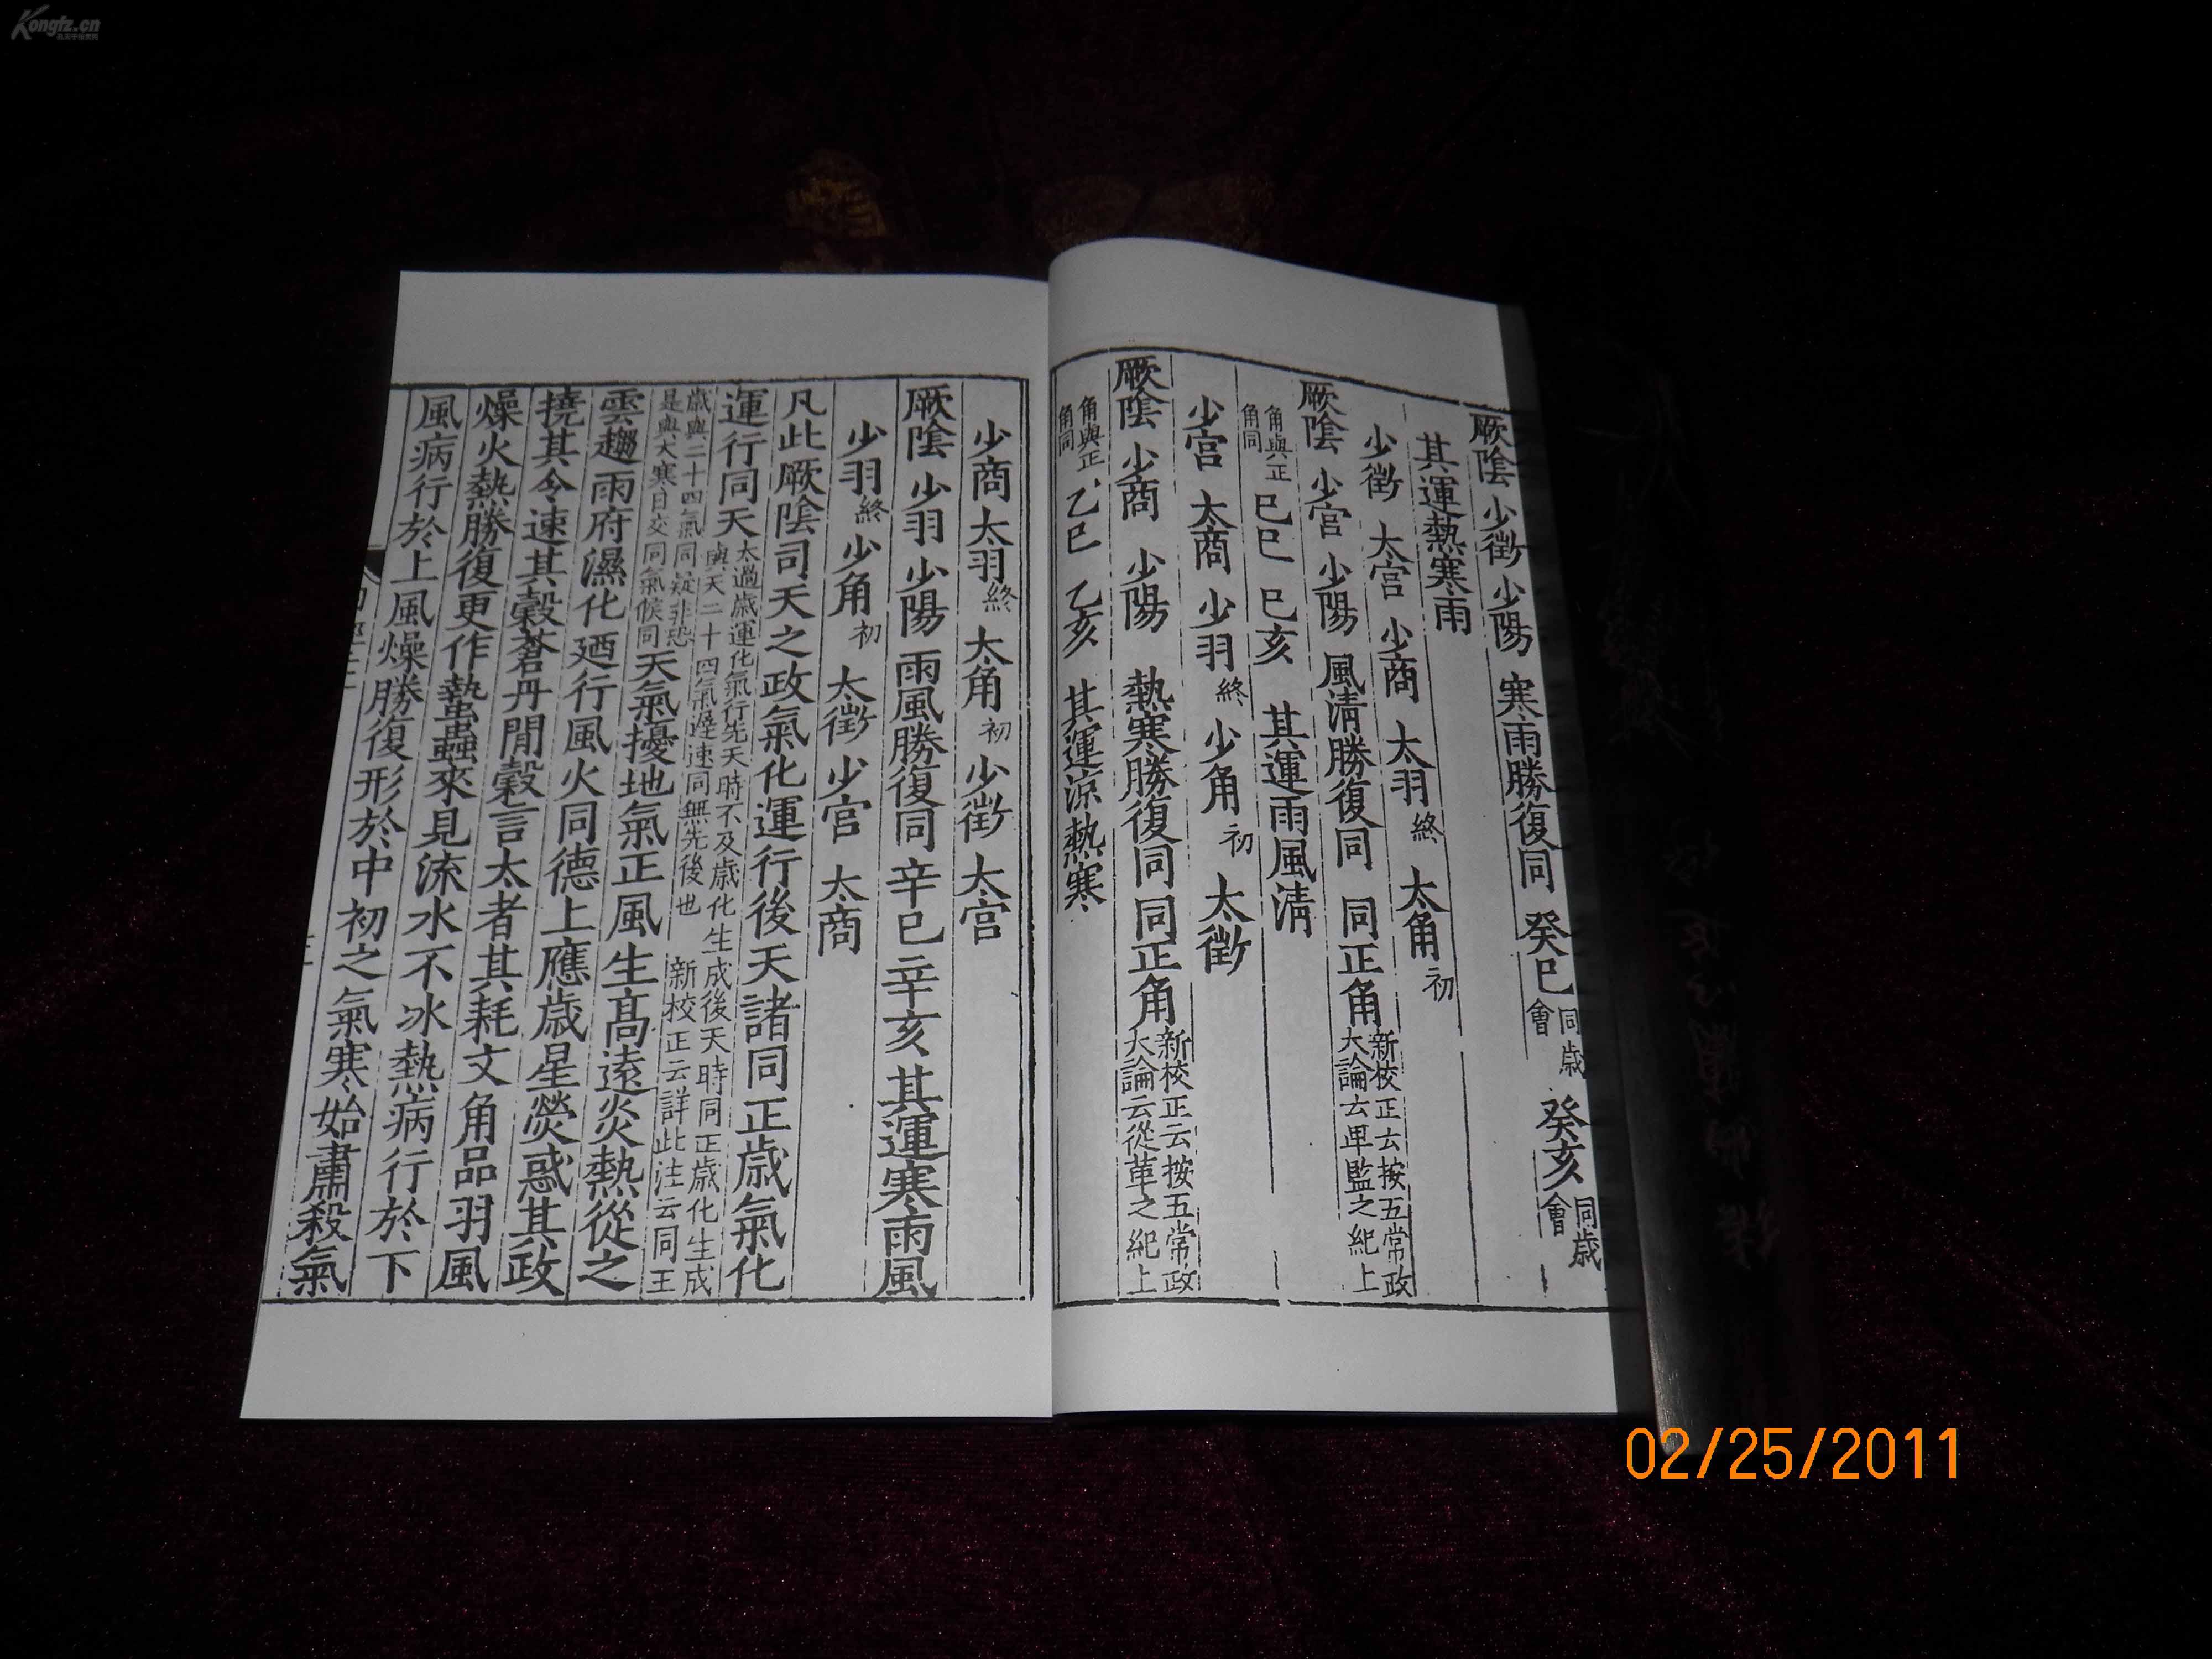 Kongfz.cn
厥陰 少徵 少陽 寒雨勝復同 癸巳 同歲會 癸亥 同歲會
其運熱寒雨
少徵 太宮 少商 太羽 終 太角 初
厥陰 少宮 少陽 風清勝復同 同正角 新校正云按五常政大論云卑監之紀上
角與正角同 己巳 己亥 其運雨風清
少宮 太商 少羽 終 少角 初 太徵
厥陰 少商 少陽 熱寒勝復同 同正角 新校正云按五常政大論云從革之紀上
角與正角同 乙巳 乙亥 其運涼熱寒
少商 太羽 終 太角 初 少徵 太宮
厥陰 少羽 少陽 雨風勝復同 辛巳 辛亥 其運寒雨風
少羽 終 少角 初 太徵 少宮 太商
凡此厥陰司天之政氣化運行後天諸同正歲氣化
運行同天 太過歲運化氣行先天時不及歲化生成後天時同正歲化生成與天二十四氣遲速同無先後也 新校正云詳此注云同正
歲與二十四氣同疑非恐是與大寒日交司氣候同 天氣擾地氣正風生高遠炎熱從之
雲趨雨府濕化廼行風火同德上應歲星熒惑其政
撓其令速其穀蒼丹間穀言太者其耗文角品羽風
燥火熱勝復更作蟄蟲來見流水不冰熱病行於下
風病行於上風燥勝復形於中 初之氣寒始肅殺氣
02/25/2011